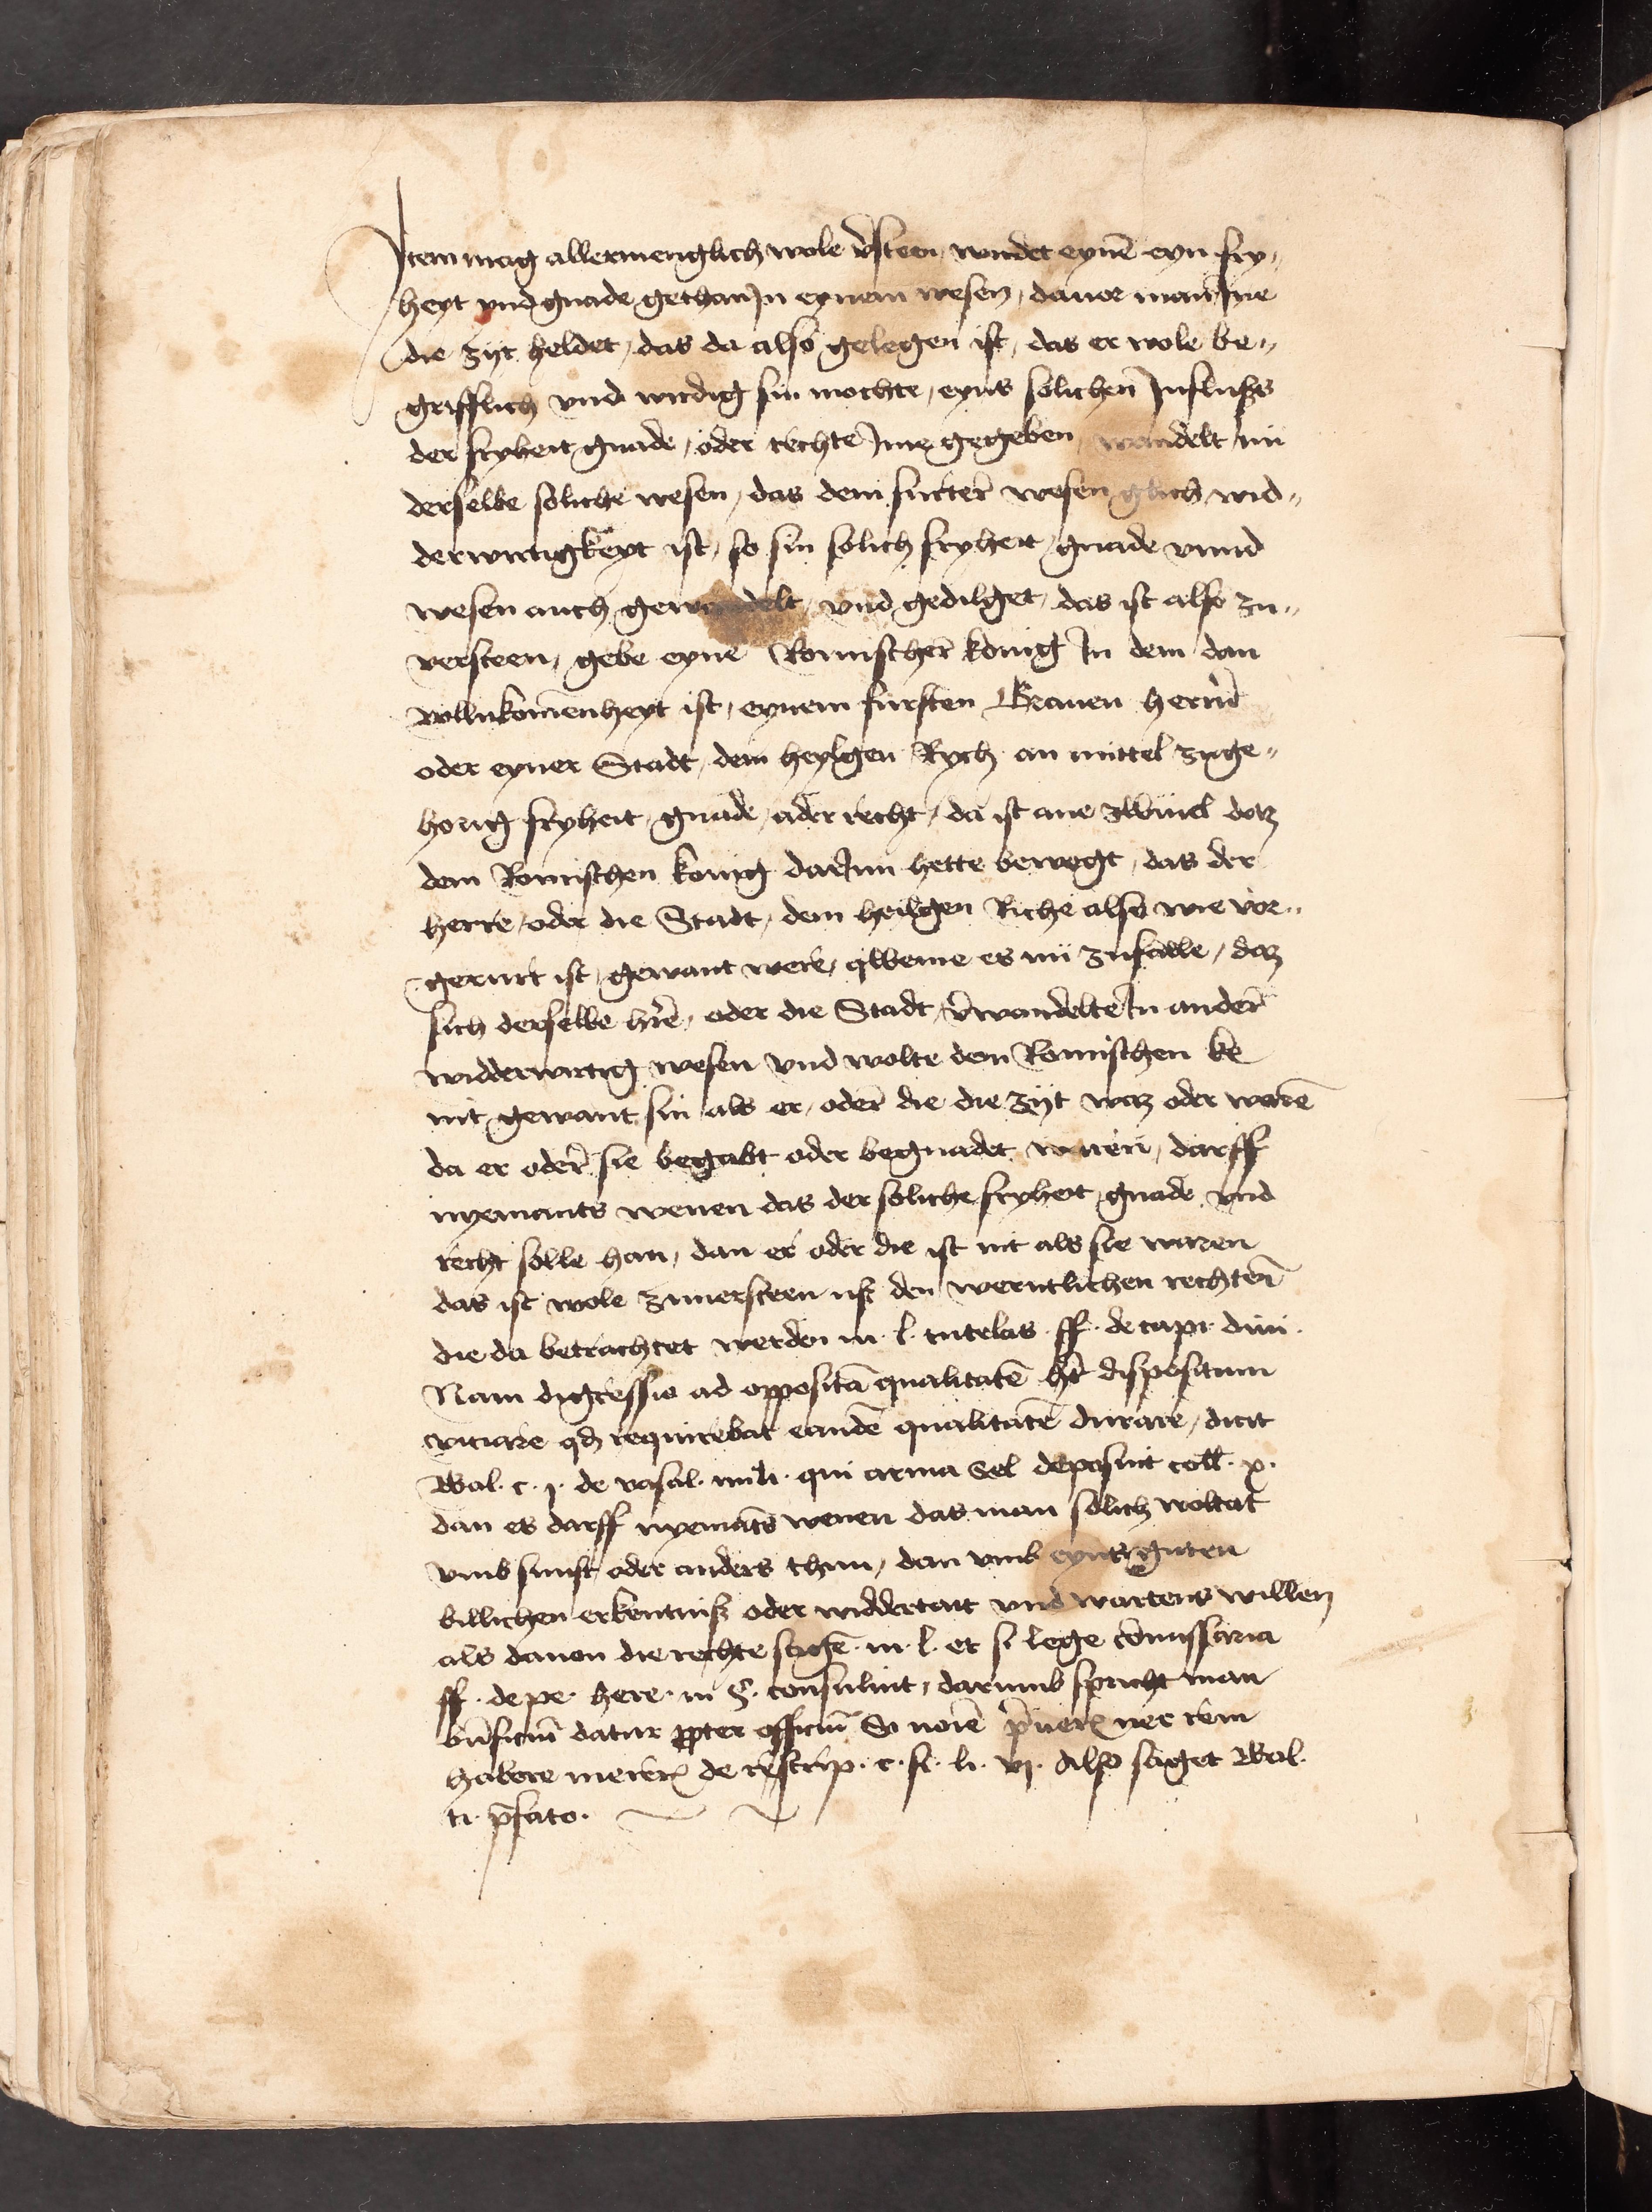 Item mag allermenglich wole v̄steen, wirdet eynē eyn fry„
heyt vnd gnade gethan Jn eynem wesen, dauor man Jne
die zijt heldet, das da also gelegen ist, das er wole be„
grifflich vnd wirdig sin mochte, eyns solichen Jnflußs
der fryheit gnade, oder rechte Jme gegeben, wandelt nū
derselbe soliche wesen, das dem furter wesen glich wid„
derwirtigkeyt ist, so sin solich fryheit, gnade vnnd
wesen auch gewandelt, vnd gedilget, das ist also zu„
versteen, gebe eyne Romischer konig Jn dem dan
vollnkomēnheyt ist, eynem fursten Grauen herrn̄
oder eyner Stadt, dem heylgen Rych an mittel zuge„
horig fryheit, gnade, ader recht, da ist ane zwiuel doz
dem Romischen konig darJnn hette bewegt, das der
herre, oder die Stadt, dem heilgen Riche also wie vor„
gerurt ist, gewant were, qweme es nū zufalle, daz
sich derselbe h're, oder die Stadt, v̄wandelte Jn ander
widderwirtig wesen vnd wolte dem Romischen ke
nit gewant sin als er, oder die die zijt waz oder warē
da er oder sie begabt oder begnadet waren, darff
nyemants wenen das der soliche fryheit, gnade vnd
recht solle han, dan er oder die ist nit als sie waren
das ist wole zuuersteen uß den werntlichen rechten
die da betrachtet werden in . l . tutelas . ff . de capi . dimi .
Nam digressio ad oppositā qualitatē h̄t dispositum
viciare qd requirebat eandē qualitatē durare, dicit
Bal . c . j . de vasal . mili . qui arma bel deposuit coll . x .
dan es darff nyemāts wenen das man solich woltat
vmb sunst oder anders thun, dan vmb eyns guten
billichen erkentniß oder widdertatt vnd wartens willen
als dauon die rechte sagē . in . l . et si lege comissaria
ff . de pe . here . in §. consuluit, darumb spricht man
bn̄ficiū datur ꝓpter officiū So
habere de rescrip . c . si . li . vj . Also saget Bal .
ti . p̄fato .